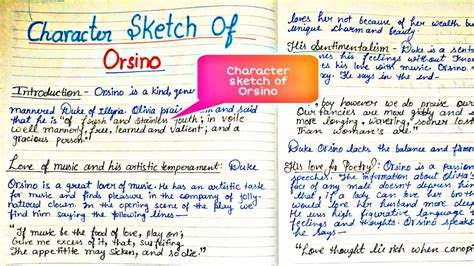 Character Sketch Of
Orsino
Introduction - Orsino is a kind, gene
mannered Duke of Illyria. Olivia prai and said
that he is "of fresh and stainless youth; in voice
well mannerly, free, learned and valient; and a
gracious person".
Love of music and his artistic temperament: Duke
Orsino is a great lover of music. He has an artistic taste
for music and finds pleasure in the company of jolly-
natured clown. In the opening scene of the play we
find him saying the following lines—
"If music be the food of love, play on;
Give me excess of it, that, surfeiting.
The appetite may sicken, and so die."
Character
sketch of
Orsino
loves her not because of her wealth b
unique charm and beauty.
His Sentimentalism - Duke is a sent
es his feelings without
es his love with music. Orsino
y. He says in the end-
boy however we do praise our
Our fancies are more giddy and
more longing, wavering, sooner lost
Than woman's are."
Duke Orsino lacks the balance and firmn
His love for Poetry: Orsino is a passion
speecher. The information about Olivia's
face of any male doesn't depress her
that, if a lady can love her brother
would love her husband more deep
He uses high figurative language
feelings and thoughts. Orsino s
as-
"Love thought lie rich when canopi